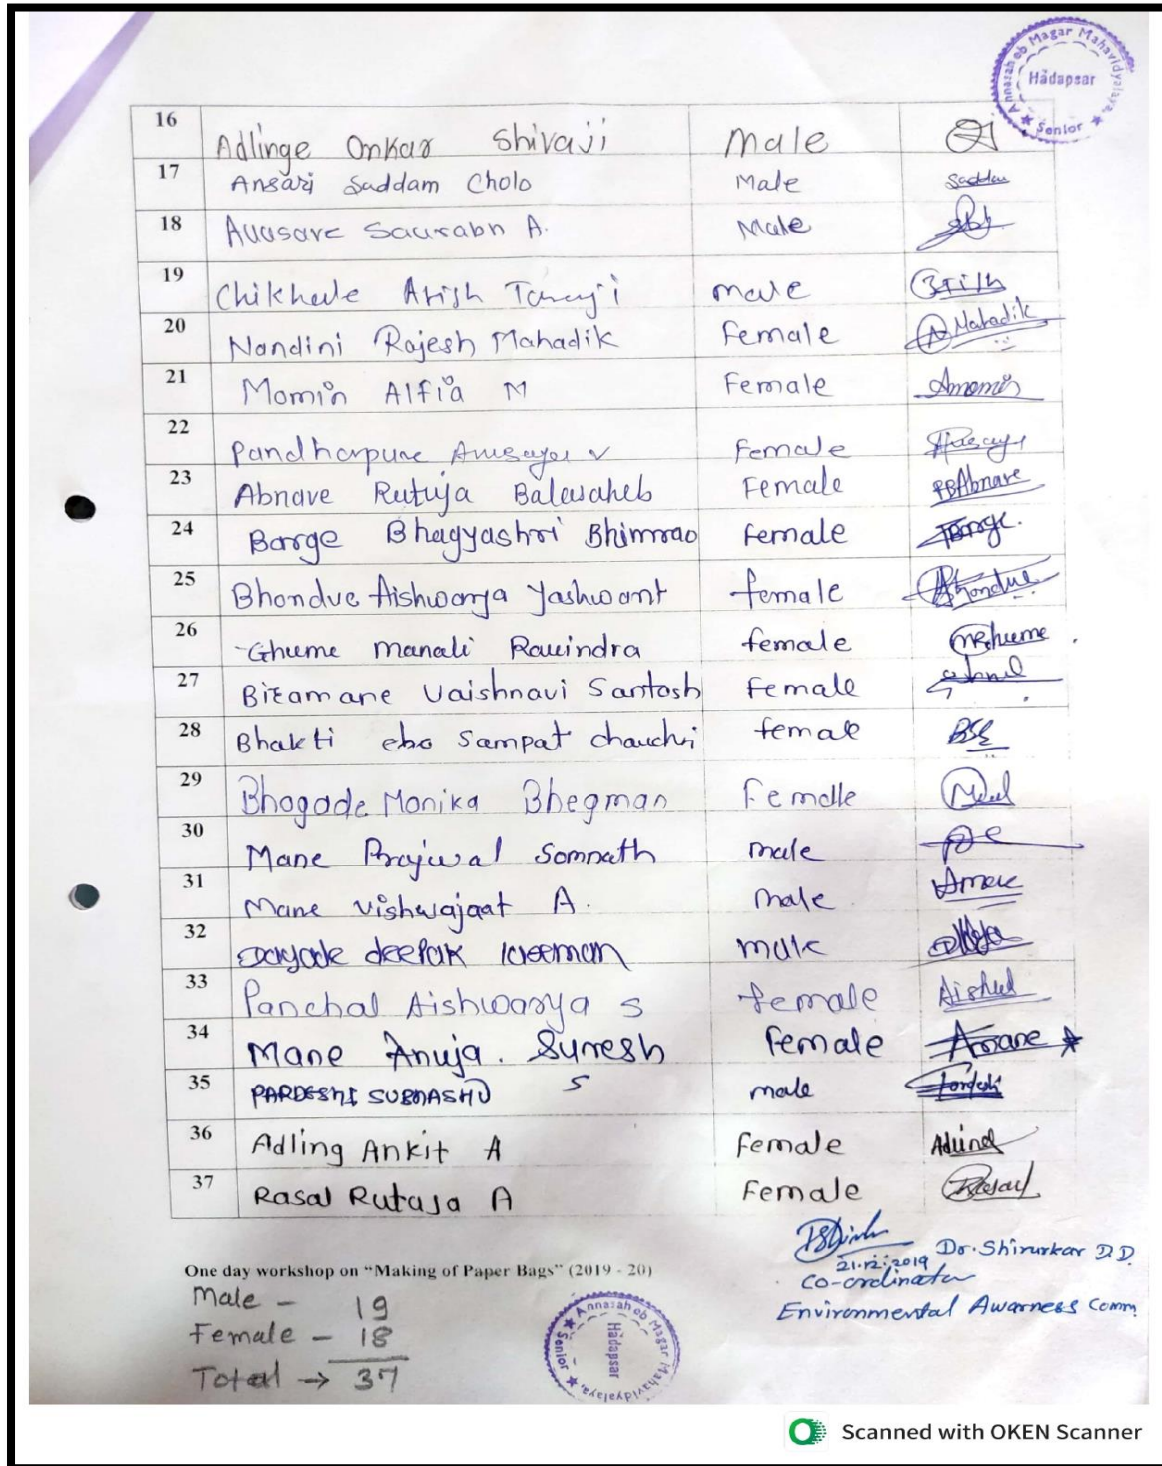 Annasaheb Magar Mahavidyalaya,
Hadapsar
★ Senior ★
16 Adlinge Omkar Shivaji male
17 Ansari Saddam Cholo Male Saddam
18 Avasare Saurabh A. Male
19 Chikhale Atish Tanaji male
20 Nandini Rajesh Mahadik Female Mahadik
21 Momin Alfia M Female Amomin
22 Pandharpure Anusaya V Female
23 Abnave Rutuja Balasaheb Female RBAbnave
24 Barge Bhagyashri Bhimrao Female Barge.
25 Bhondve Aishwarya Yashwant female Bhondve
26 Ghume Manali Ravindra female MRGhume
27 Biramane Vaishnavi Santosh Female
28 Bhakti Sampat chaudhri female
29 Bhogade Monika Bhegman Female
30 Mane Prajwal Somnath male
31 Mane Vishwajaat A. Male Amane
32 deepak male
33 Panchal Aishwarya S female
34 Mane Anuja. Suresh Female Amane
35 PARDESHI S male Pardeshi
36 Adling Ankit A Female
37 Rasal Rutuja A Female Rasal
Dr. Shirurkar D.D.
21.12.2019
Co-ordinator
Environmental Awarness Comm.
One day workshop on “Making of Paper Bags” (2019 - 20)
Male – 19
Female – 18
Total → 37
Annasaheb Magar Mahavidyalaya,
Hadapsar
★ Senior ★
Scanned with OKEN Scanner